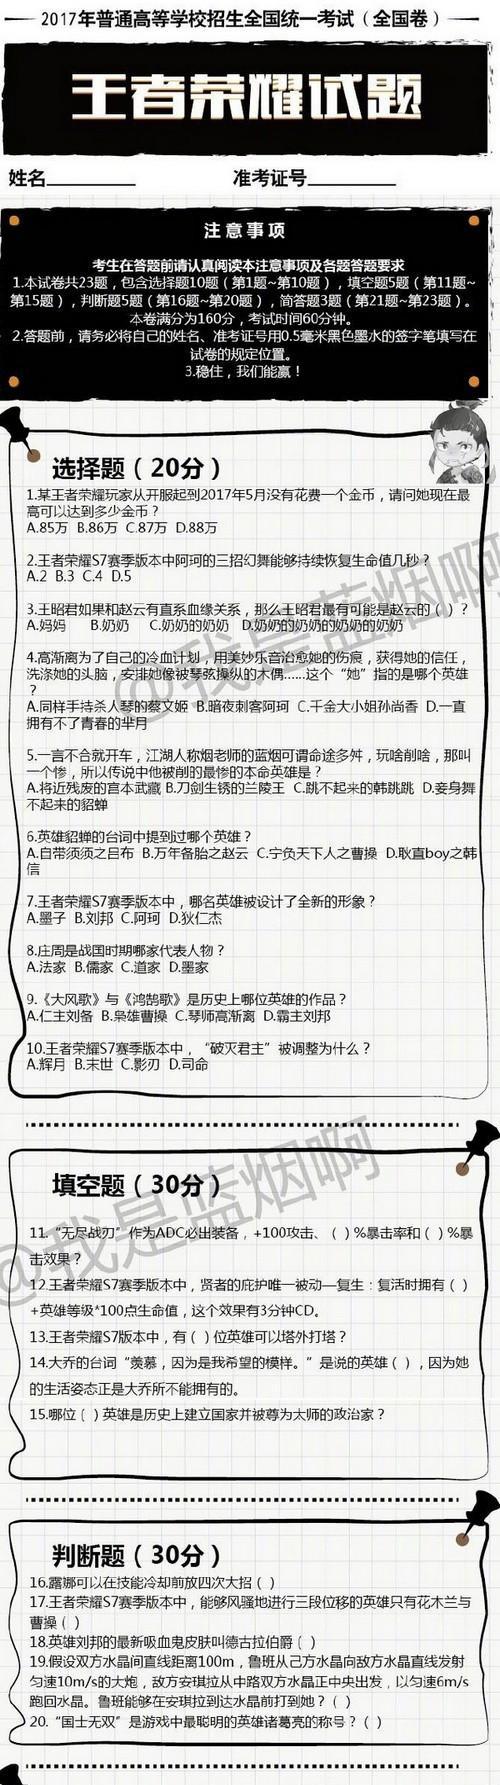 2017年普通高等学校招生全国统一考试（全国卷）
王者荣耀试题
姓名 准考证号
注意事项
考生在答题前请认真阅读本注意事项及各题答题要求
1.本试卷共23题，包含选择题10题（第1题~第10题），填空题5题（第11题~
第15题），判断题5题（第16题~第20题），简答题3题（第21题~第23题）。
本卷满分为160分，考试时间60分钟。
2.答题前，请务必将自己的姓名、准考证号用0.5毫米黑色墨水的签字笔填写在
试卷的规定位置。
3.稳住，我们能赢！
选择题（20分）
1.某王者荣耀玩家从开服起到2017年5月没有花费一个金币，请问她现在最
高可以达到多少金币？
A.85万 B.86万 C.87万 D.88万
2.王者荣耀S7赛季版本中阿珂的三招幻舞能够持续恢复生命值几秒？
A.2 B.3 C.4 D.5
3.王昭君如果和赵云有直系血缘关系，那么王昭君最有可能是赵云的（）？
A.妈妈 B.奶奶 C.奶奶的奶奶 D.奶奶的奶奶的奶奶的奶奶
4.高渐离为了自己的冷血计划，用美妙乐音治愈她的伤痕，获得她的信任，
洗涤她的头脑，安排她像被琴弦操纵的木偶……这个“她”指的是哪个英雄
？
A.同样手持杀人琴的蔡文姬 B.暗夜刺客阿珂 C.千金大小姐孙尚香 D.一直
拥有不了青春的芈月
5.一言不合就开车，江湖人称烟老师的蓝烟可谓命途多舛，玩啥削啥，那叫
一个惨，所以传说中他被削的最惨的本命英雄是？
A.将近残废的宫本武藏 B.刀剑生锈的兰陵王 C.跳不起来的韩跳跳 D.妾身舞
不起来的貂蝉
6.英雄貂蝉的台词中提到过哪个英雄？
A.自带须须之吕布 B.万年备胎之赵云 C.宁负天下人之曹操 D.耿直boy之韩
信
7.王者荣耀S7赛季版本中，哪名英雄被设计了全新的形象？
A.墨子 B.刘邦 C.阿珂 D.狄仁杰
8.庄周是战国时期哪家代表人物？
A.法家 B.儒家 C.道家 D.墨家
9.《大风歌》与《鸿鹄歌》是历史上哪位英雄的作品？
A.仁主刘备 B.枭雄曹操 C.琴师高渐离 D.霸主刘邦
10.王者荣耀S7赛季版本中，“破灭君主”被调整为什么？
A.辉月 B.末世 C.影刃 D.司命
填空题（30分）
11.“无尽战刃”作为ADC必出装备，+100攻击、（）%暴击率和（）%暴
击效果？
12.王者荣耀S7赛季版本中，贤者的庇护唯一被动—复生：复活时拥有（）
+英雄等级*100点生命值，这个效果有3分钟CD。
13.王者荣耀S7版本中，有（）位英雄可以塔外打塔？
14.大乔的台词“羡慕，因为是我希望的模样。”是说的英雄（），因为她
的生活姿态正是大乔所不能拥有的。
15.哪位（）英雄是历史上建立国家并被尊为太师的政治家？
判断题（30分）
16.露娜可以在技能冷却前放四次大招（）
17.王者荣耀S7赛季版本中，能够风骚地进行三段位移的英雄只有花木兰与
曹操（）
18.英雄刘邦的最新吸血鬼皮肤叫德古拉伯爵（）
19.假设双方水晶间直线距离100m，鲁班从己方水晶向敌方水晶直线发射
匀速10m/s的大炮，敌方安琪拉从中路双方水晶正中央出发，以匀速6m/s
跑回水晶。鲁班能够在安琪拉到达水晶前打到她？（）
20.“国士无双”是游戏中最聪明的英雄诸葛亮的称号？（）
@我是蓝烟啊
@我是蓝烟啊